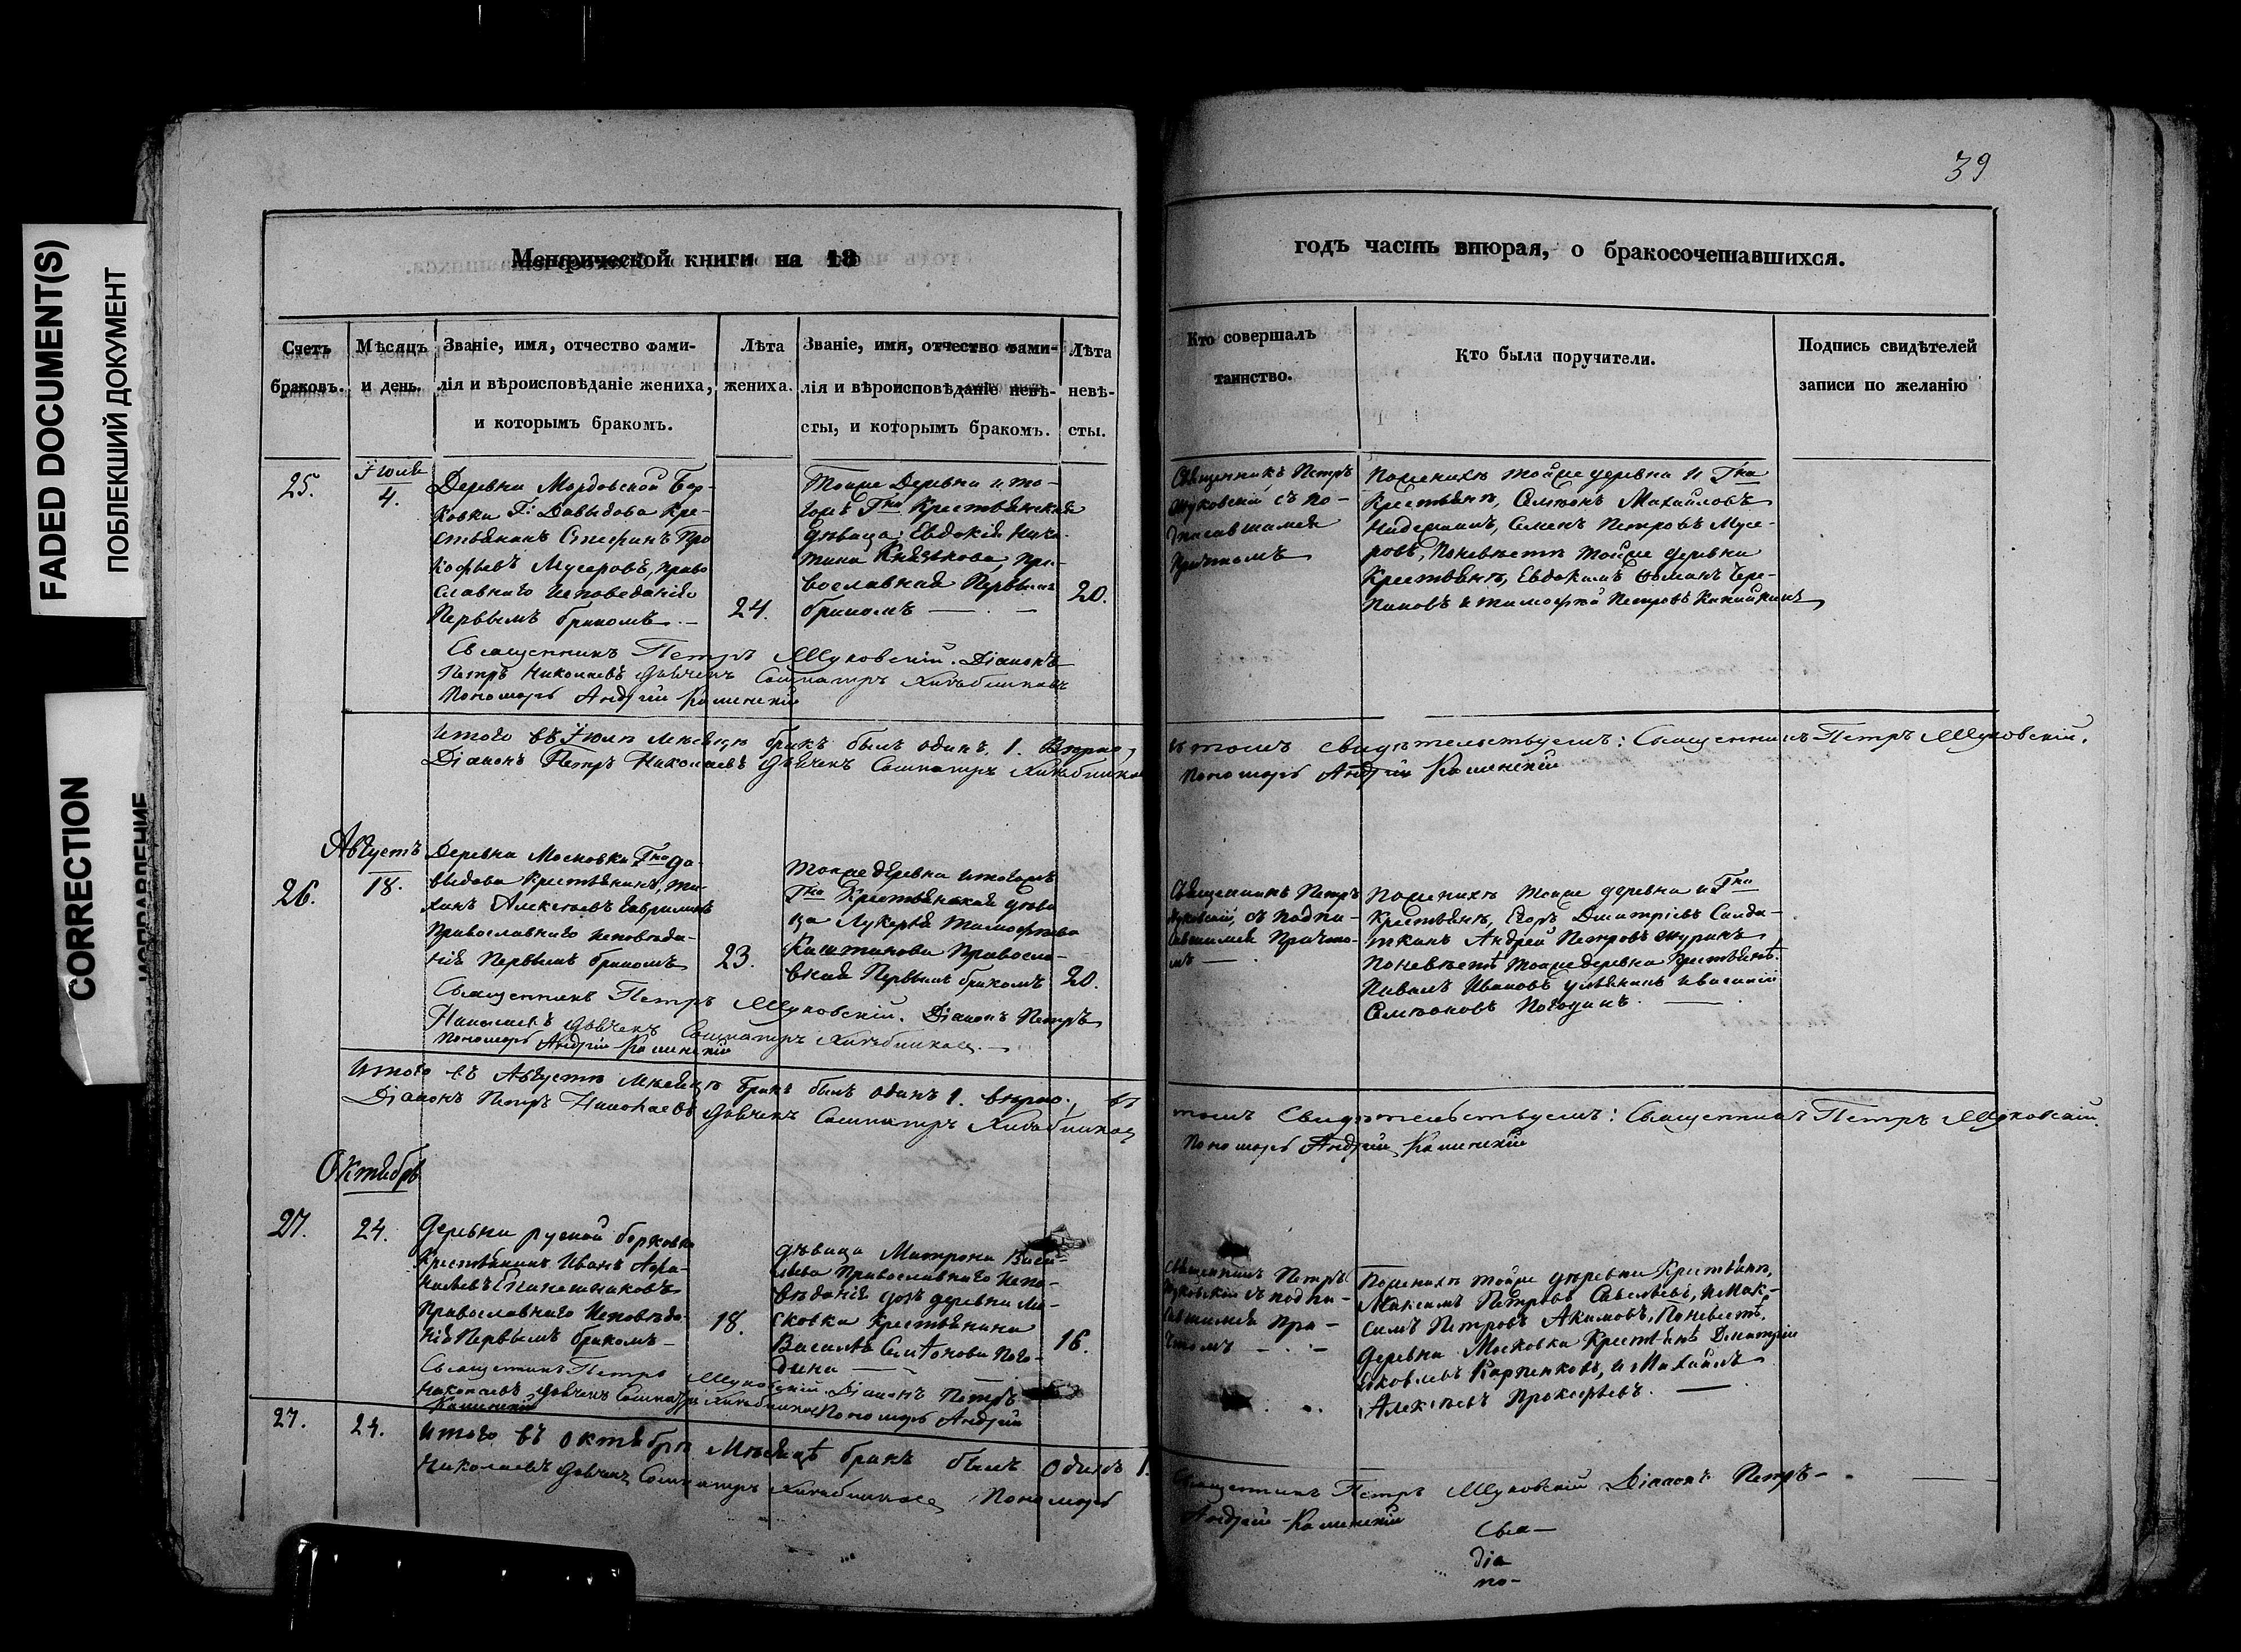 FADED DOCUMENT(S)
ПОБЛЕКШИЙ ДОКУМЕНТ
CORRECTION
ИСПРАВЛЕНИЕ
39
Метрической книги на 18
годъ часть вторая, о бракосочетавшихся.
Счетъ
браковъ.
Мѣсяцъ
и день.
Званіе, имя, отчество фами-
лія и вѣроисповѣданіе жениха,
и которымъ бракомъ.
Лѣта
жениха.
Званіе, имя, отчество фами-
лія и вѣроисповѣданіе невѣ-
сты, и которымъ бракомъ.
Лѣта
невѣ-
сты.
Кто совершалъ
таинство.
Кто были поручители.
Подпись свидѣтелей
записи по желанію
25.
Іюль
4.
Деревни Мордовской Бор-
ковки Г. Давыдова Кре-
стьянинъ Стефанъ Про
кофьевъ Мусеровъ, право
славнаго исповеданія
Первымъ бракомъ. —
24.
Тойже Деревни и то-
гожъ Гна Крестьянская
дѣвица, Евдокія Ники-
тина Князькова, пра-
вославная Первымъ
бракомъ —
20.
Священникъ Петръ
Жуковскій съ по-
дписавшимся
Причтомъ
Поженихѣ тойже деревни и Гна
Крестьяне, Семіонъ Михайловъ
Семенъ Петровъ Мусе-
ровъ, Поневѣсте тойже деревни
Крестьяне, Евдокимъ Фоминъ Чере-
пановъ и Тимофей Петровъ
Священникъ Петръ Жуковскій. Діаконъ
Петръ Николаевъ дьячекъ Сосипатръ Хлѣбниковъ
Пономарь Андрей Каменскій
Итого въ Іюлѣ мѣсяцѣ бракъ былъ одинъ. 1. Вѣрно,
Діаконъ Петръ Николаевъ дьячекъ Сосипатръ
въ томъ свидѣтельствуемъ: Священникъ Петръ Жуковскій.
Пономарь Андрей Каменскій
Августъ
26.
18.
Деревни Московки Гна Да-
выдова Крестьянинъ, Ти-
ханъ Алексѣевъ Гавриловъ
Православнаго исповѣда-
нія Первымъ бракомъ
23.
Тойже деревни итогожъ
Гна Крестьянская дѣви
ца Лукерья Тимофѣева
Каштанова Правосла-
вная Первымъ бракомъ
20.
Священникъ Петръ
Жуковскій, съ подпи-
савшимся Причто-
мъ —
Поженихѣ тойже деревни и Гна
Крестьяне, Егоръ Дмитріевъ Солда-
ткинъ Андрей Петровъ Журинъ
Поневѣстѣ тойже деревни Крестьянѣ.
Павелъ Ивановъ Ульянинъ и Василій
Семіоновъ Погодинъ. —
Священникъ Петръ Жуковскій. Діаконъ Петръ
Николаевъ дьячекъ Сосипатръ
Пономарь Андрей Каменскій
Итого въ Августѣ мѣсяцѣ бракъ былъ одинъ 1. вѣрно, въ
Діаконъ Петръ Николаевъ дьячекъ Сосипатръ
томъ Свидѣтельствуемъ: Священникъ Петръ Жуковскій.
Пономарь Андрей Каменскій
Октябрь
27.
24.
Деревни руской борковки
Крестьянинъ Иванъ Афа-
насьевъ
Православнаго исповѣда-
нія Первымъ бракомъ —
18.
дѣвица Матрона Васи-
льева Православнаго испо-
вѣданія дочь деревни Мо-
сковки Крестьянина
Василья Семіонова Пого-
дина —
16.
Священникъ Петръ
Жуковскій съ подпи-
савшимся При-
чтомъ —
Поженихѣ тойже деревни Крестьяне,
Максимъ Петровъ Савельевъ, и Мак-
симъ Петровъ Акимовъ, Поневестѣ,
Деревни Московки Крестьянѣ Дмитрій
Яковлевъ Карпенковъ, и Михайлъ
Алексѣевъ Прокофьевъ. —
Священникъ Петръ Жуковскій Діаконъ Петръ
Николаевъ дьячекъ Сосипатръ Пономарь Андрей
Каменскій
27.
24.
Итого въ октябрѣ Мѣсяцѣ бракъ былъ одинъ 1.
Николаевъ дьячекъ Сосипатръ Пономарь
Священникъ Петръ Жуковскій Діаконъ Петръ —
Андрей Каменскій
Свя—
діа
по-